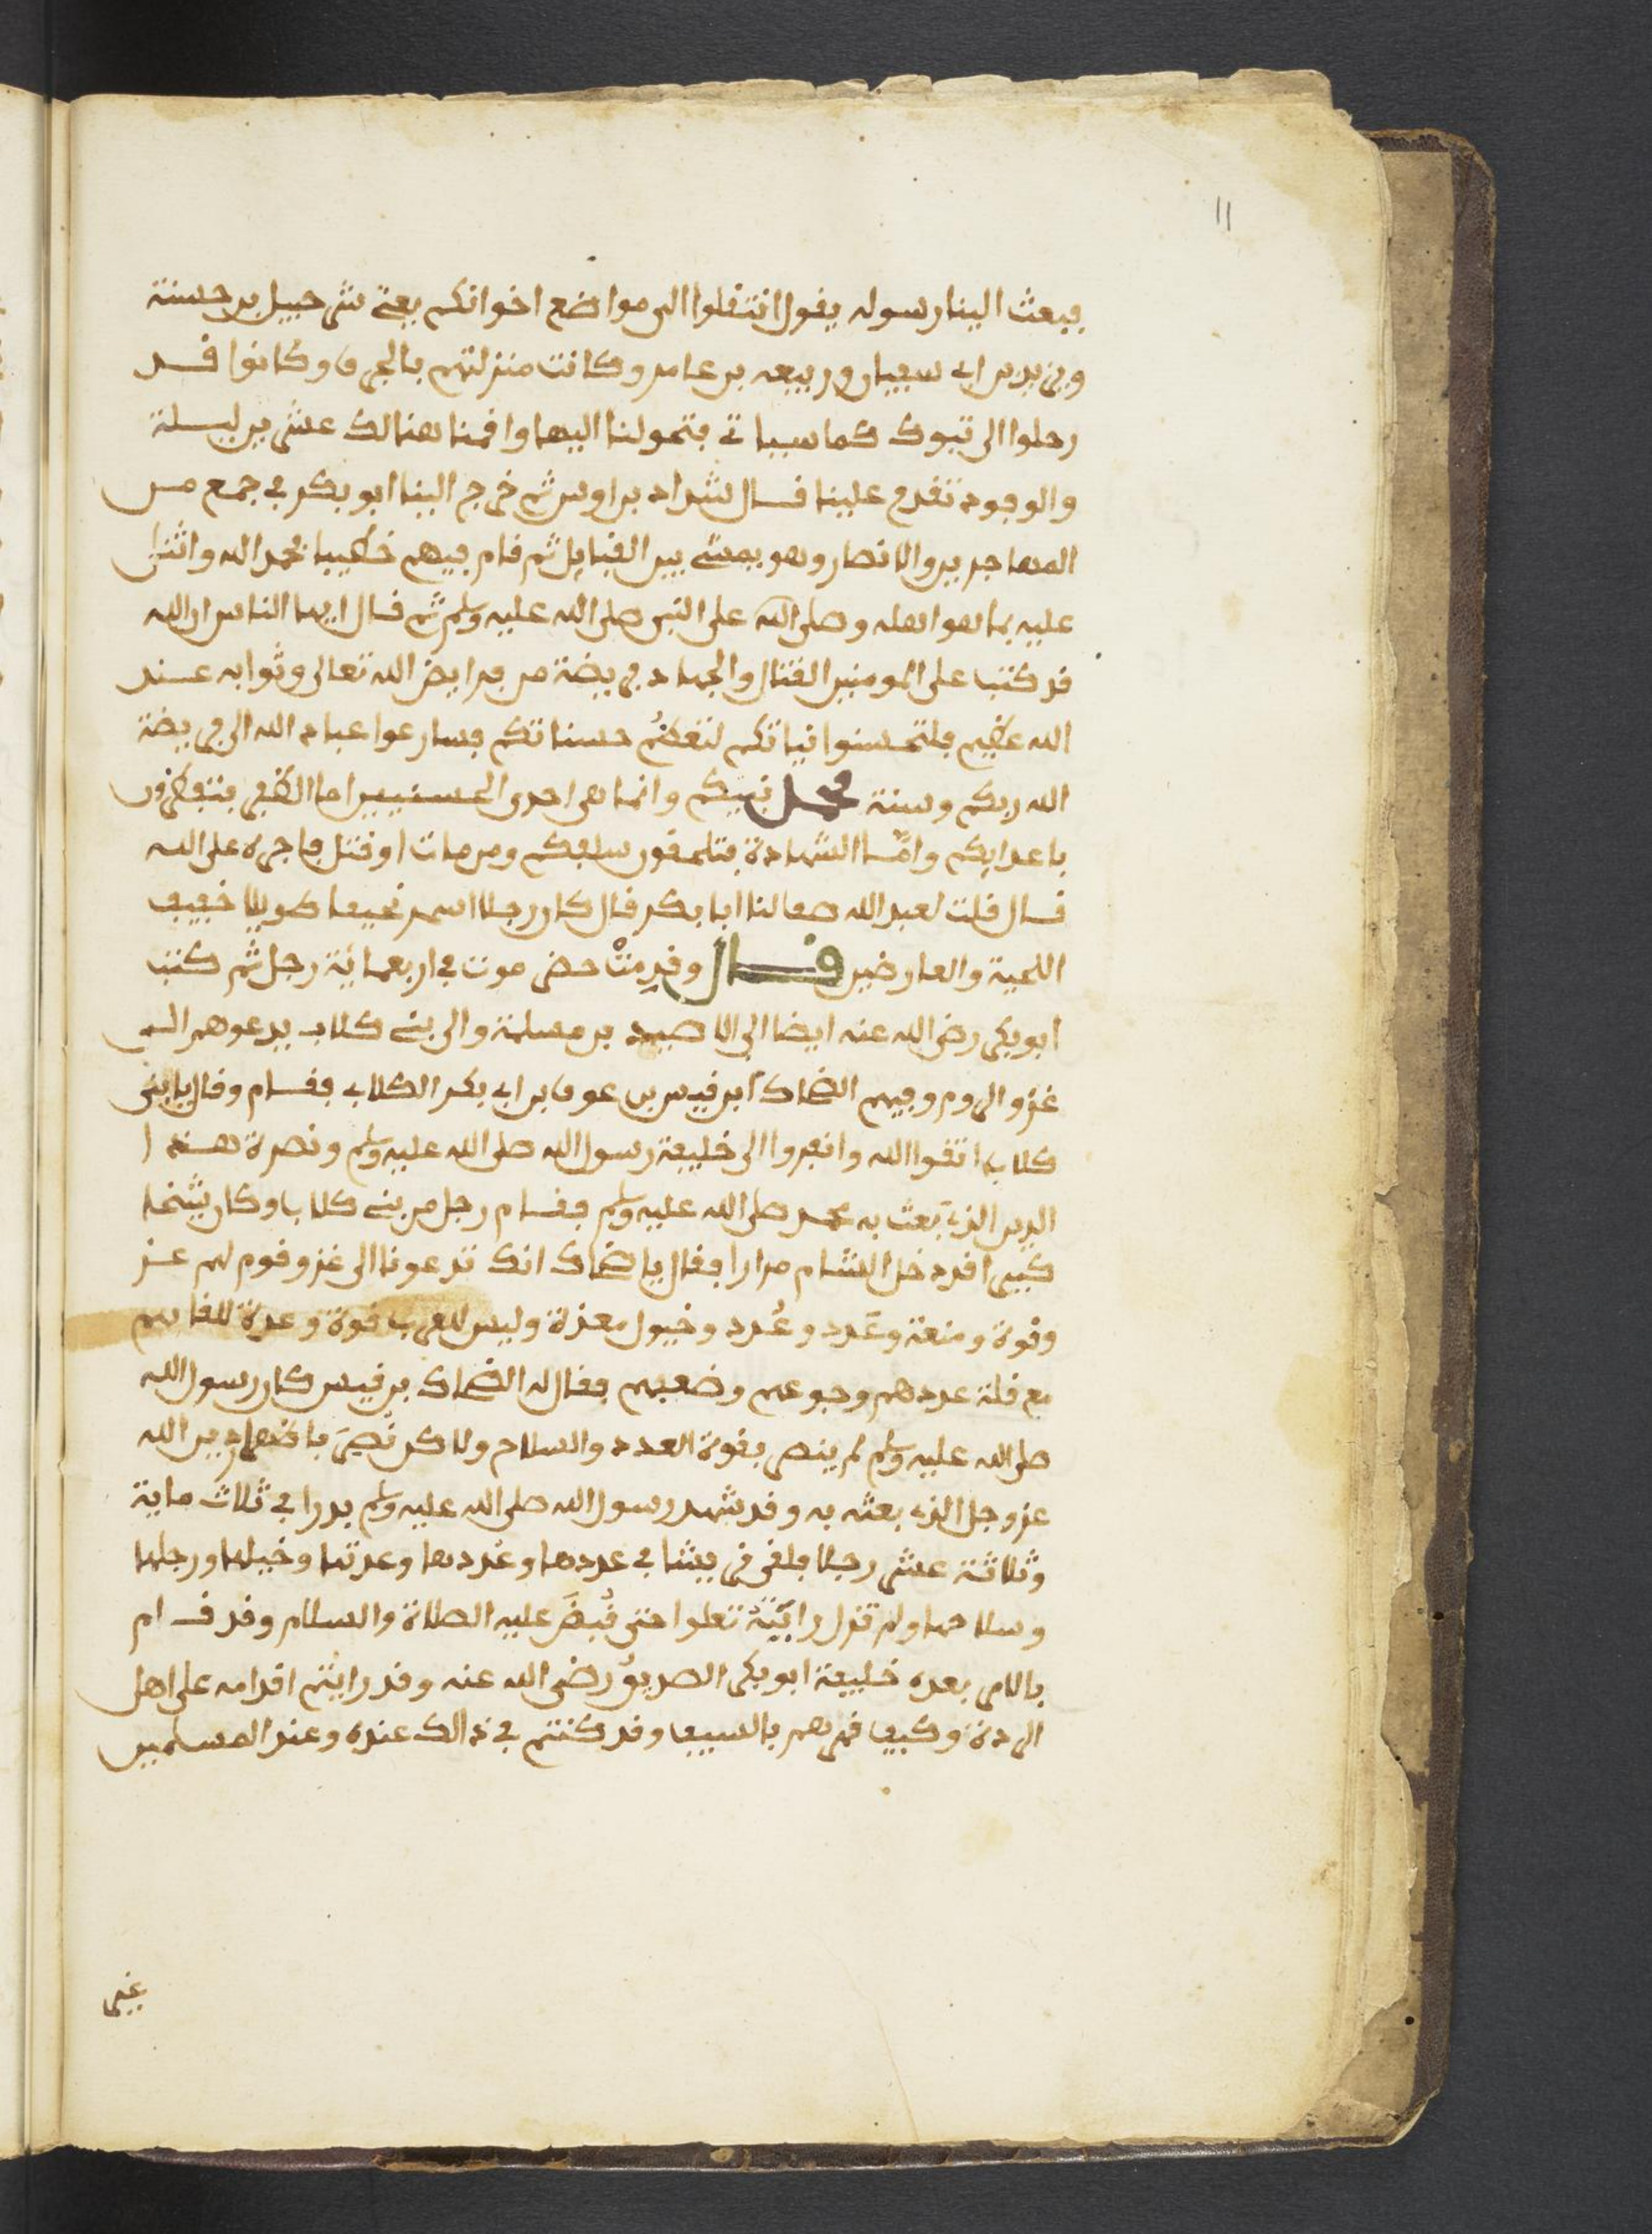 11
فبعث الينا رسوله يقول انتقلوا الى مواضع اخوانكم يعني شرحبيل بن حسنة
ويزيد بن ابي سفيان وربيعه بن عامر وكانت منزلتهم بالجرف وكانوا قد
رحلوا الى تبوك كما سياتي فتحولنا اليها واقمنا هنالك عشرين ليلة
والوفود تقدم علينا قال شداد بن اوس ثم خرج الينا ابو بكر في جمع من
المهاجرين والانصار وهو يمشي بين القبايل ثم قام فيهم خطيبا فحمد الله واثنى
عليه بما هو اهله وصلى الله على النبي صلى الله عليه وسلم ثم قال ايها الناس ان الله
قد كتب على المومنين القتال والجهاد فريضة من فرايض الله تعالى وثوابه عند
الله عظيم فلتحسنوا نياتكم لتعظم حسناتكم فسارعوا عباد الله الى فريضة
الله ربكم وسنة محمد نبيكم وانما هي احدى الحسنيين اما الظفر فتظفرون
باعدايكم وامّا الشهادة فتلحقون سلفكم ومن مات او قتل فاجره على الله
قال قلت لعبد الله صف لنا ابا بكر قال كان رجلا اسمر نحيفا طويلا خفيف
اللحية والعارضين قال وقدِمتْ حضر موت في اربعمائة رجل ثم كتب
ابو بكر رضي الله عنه ايضا الى الاصيد بن مسلمة والى بني كلاب يدعوهم الى
غزو الروم وفيهم الضحاك ابن قيس بن عوف بن ابي بكر الكلابي فقام وقال يا بني
كلاب اتقوا الله وانفروا الى خليفة رسول الله صلى الله عليه وسلم ونصرة هذا
الدين الذي بَعث به محمد صلى الله عليه وسلم فقام رجل من بني كلاب وكان شيخا
كبيرا قد دخل الشام مرارا فقال يا ضحاك انك تدعونا الى غزو قوم لهم عز
وقوة ومنعة وعَدد وعُدد وخيول معدة وليس للعرب قوة وعدة للقاهم
مع قلة عددهم وجوعهم وضعفهم فقال له الضحاك بن قيس كان رسول الله
صلى الله عليه وسلم لم ينصر بقوة العدد والسلاح ولاكن نُصِرَ باظهار دين الله
عز وجل الذي بعثه به وقد شهد رسول الله صلى الله عليه وسلم بدرا في ثلاث ماية
وثلاثة عشر رجلا فلقي قريشا في عددها وعُددها وعدتها وخيلها ورجلها
وسلاحها ولم تزل رايَتُهُ تعلوا حتى قُبِضَ عليه الصلاة والسلام وقد قام
بالامر بعده خليفة ابو بكر الصديق رضي الله عنه وقد رايتم اقدامه على اهل
الردة وكيف قهرهم بالسيف وقد كنتم في ذالك عنده وعند المسلمين
غير